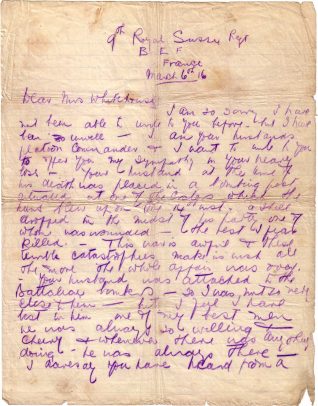 9th Royal Sussex Rgt
B E F
France
March 6th 16
Dear Mrs Whitehouse
I am so sorry I have
not been able to write to you before - but I have
been so unwell - I am your husbands
platoon Commander & I want to write to you
to offer you my sympathy in your heavy
loss - Your husband at the time of
his death was placed in a bombing post
situated at one of the
have blown up - a shell
dropped in the midst of the party one of
whom was wounded - & the rest
killed. - This war is awful & these
terrible catastrophes make us wish all
the more the whole affair was over.
Your husband was attached to the
Battalion bombers - so I was not so
close to him - but I feel I have
lost in him one of my best men
he was always so willing &
cheery & whenever there was anything
doing - he was always there -
I daresay you have heard from a